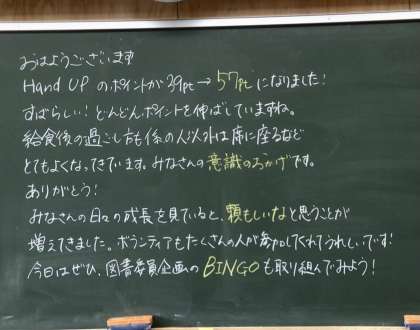 おはようございます
Hand UP のポイントが39pt→57ptになりました!
すばらしい!どんどんポイントを伸ばしていますね。
給食後の過ごし方も係の人以外は席に座るなど
とてもよくなってきています。みなさんの意識のおかげです。
ありがとう!
みなさんの日々の成長を見ていると、頼もしいなと思うことが
増えてきました。ボランティアもたくさんの人が参加してくれてうれしいです!
今日はぜひ、図書委員企画のBINGOも取り組んでみよう!